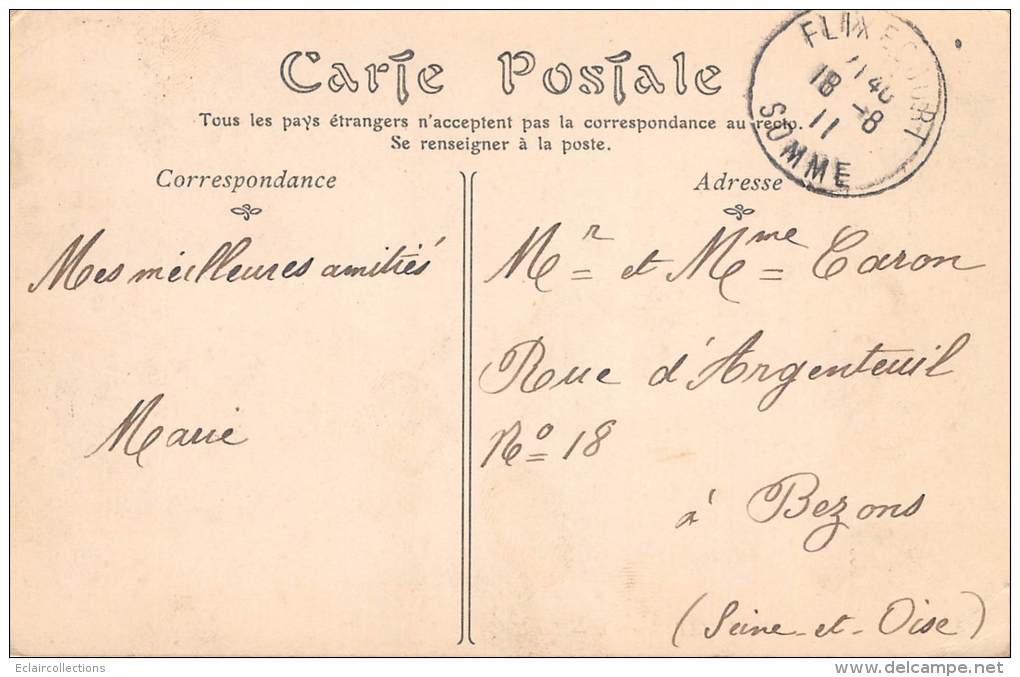 Carte Postale
Tous les pays étrangers n'acceptent pas la correspondance au recto.
Se renseigner à la poste.
Correspondance
Mes meilleures amitiés
Marie
Adresse
Mr et Mme Caron
Rue d'Argenteuil
No 18
à Bezons
(Seine-et-Oise)
FLIXECOURT
11 40
18 -8
11
SOMME
Eclaircollections
delcampe.net